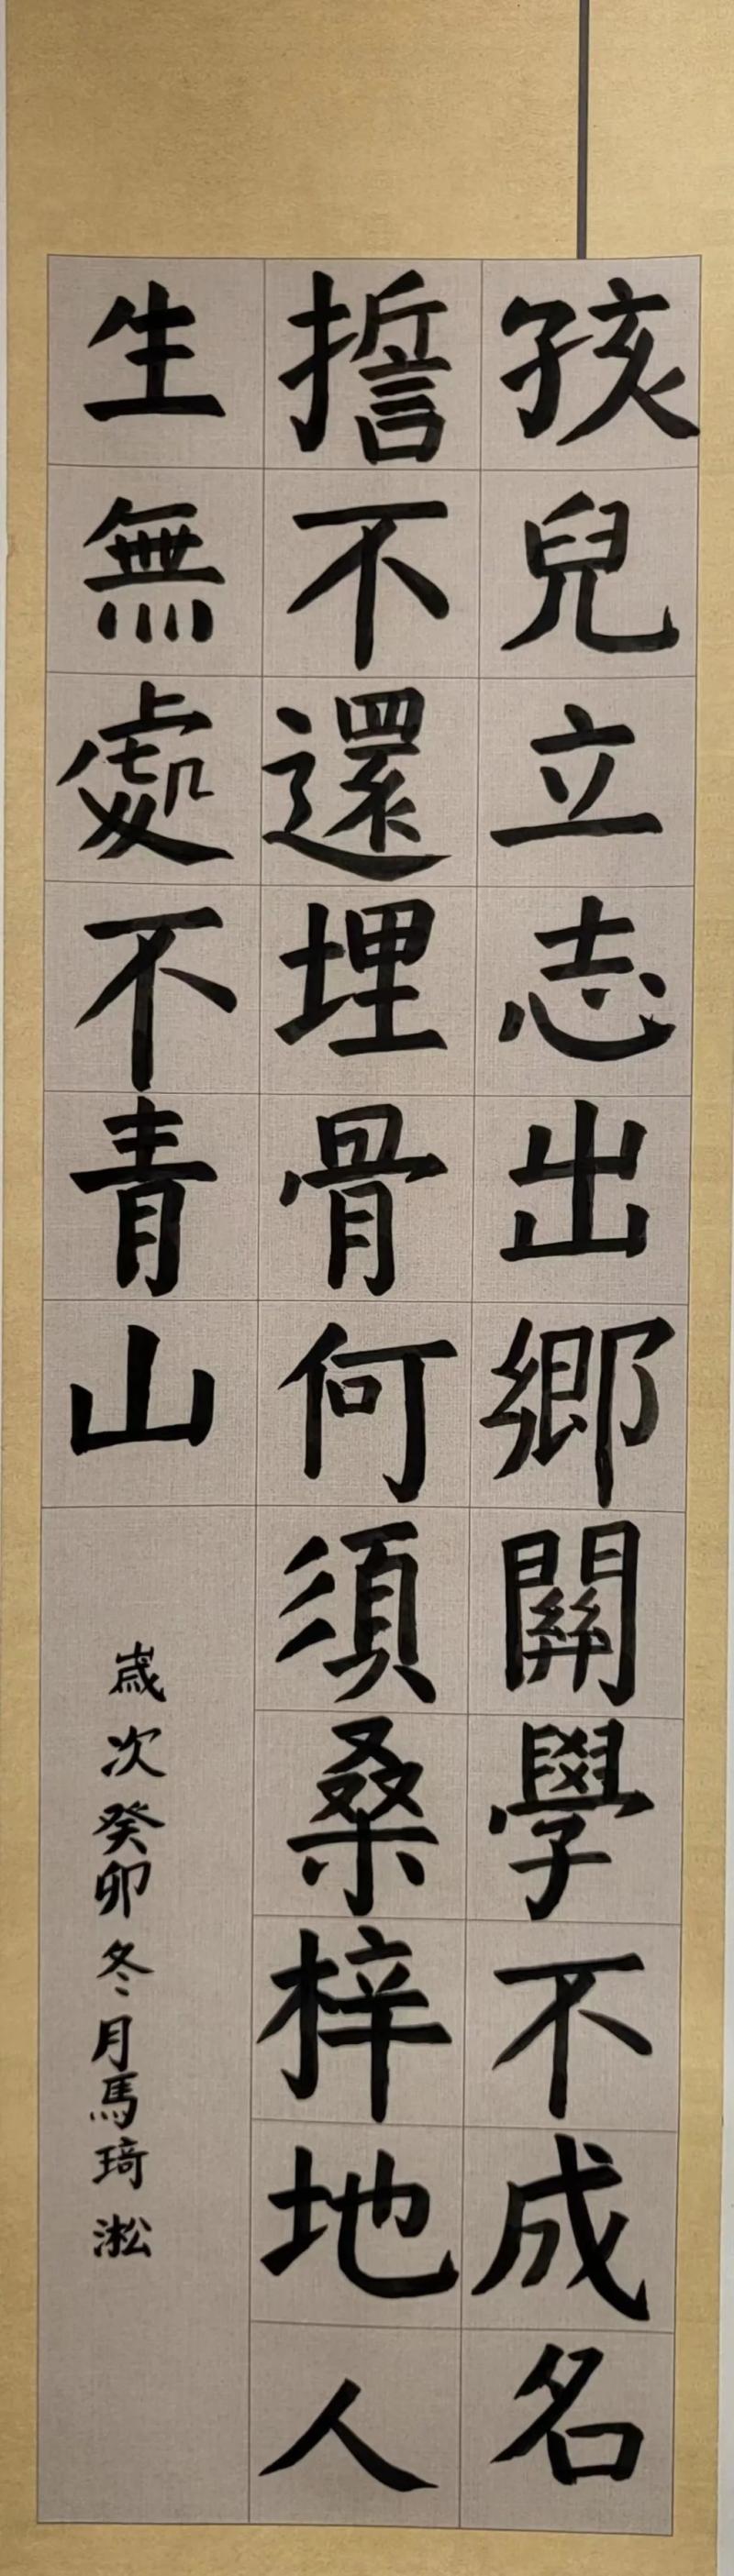 孩兒立志出鄉關學不成名
誓不還埋骨何須桑梓地人
生無處不青山
歲次癸卯冬月馬琦淞